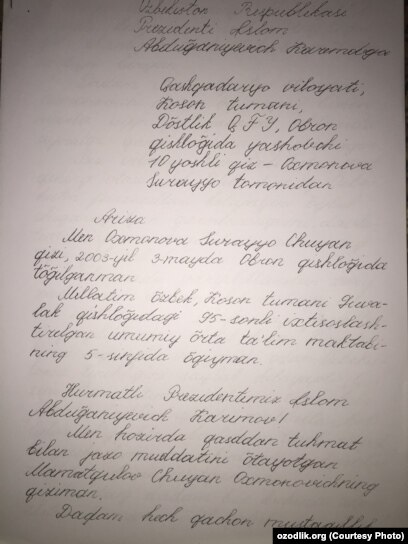 Özbekiston Respublikasi
Prezidenti Islom
Abduğaniyevich Karimovga
Qashqadaryo viloyati,
Koson tumani,
Döstlik QFY, Obron
qishloğida yashovchi
10 yoshli qiz - Oxmonova
Surayyo tomonidan
Ariza
Men Oxmonova Surayyo Chuyan
qizi, 2003-yil 9-mayda Obron qishloğida
töğilganman.
Millatim özbek, Koson tumani
lak qishloğidagi 95-sonli ixtisoslash-
tirilgan umumiy örta ta'lim maktabi-
ning 5-sinfida öqiyman.
Hurmatli Prezidentimiz Islom
Abduğaniyevich Karimov!
Men hozirda qasddan tuhmat
bilan jazo muddatini ötayotgan
Mamatqulov Chuyan Oxmonovichning
qiziman.
Dadam hech qachon mustaqillik
ozodlik.org (Courtesy Photo)